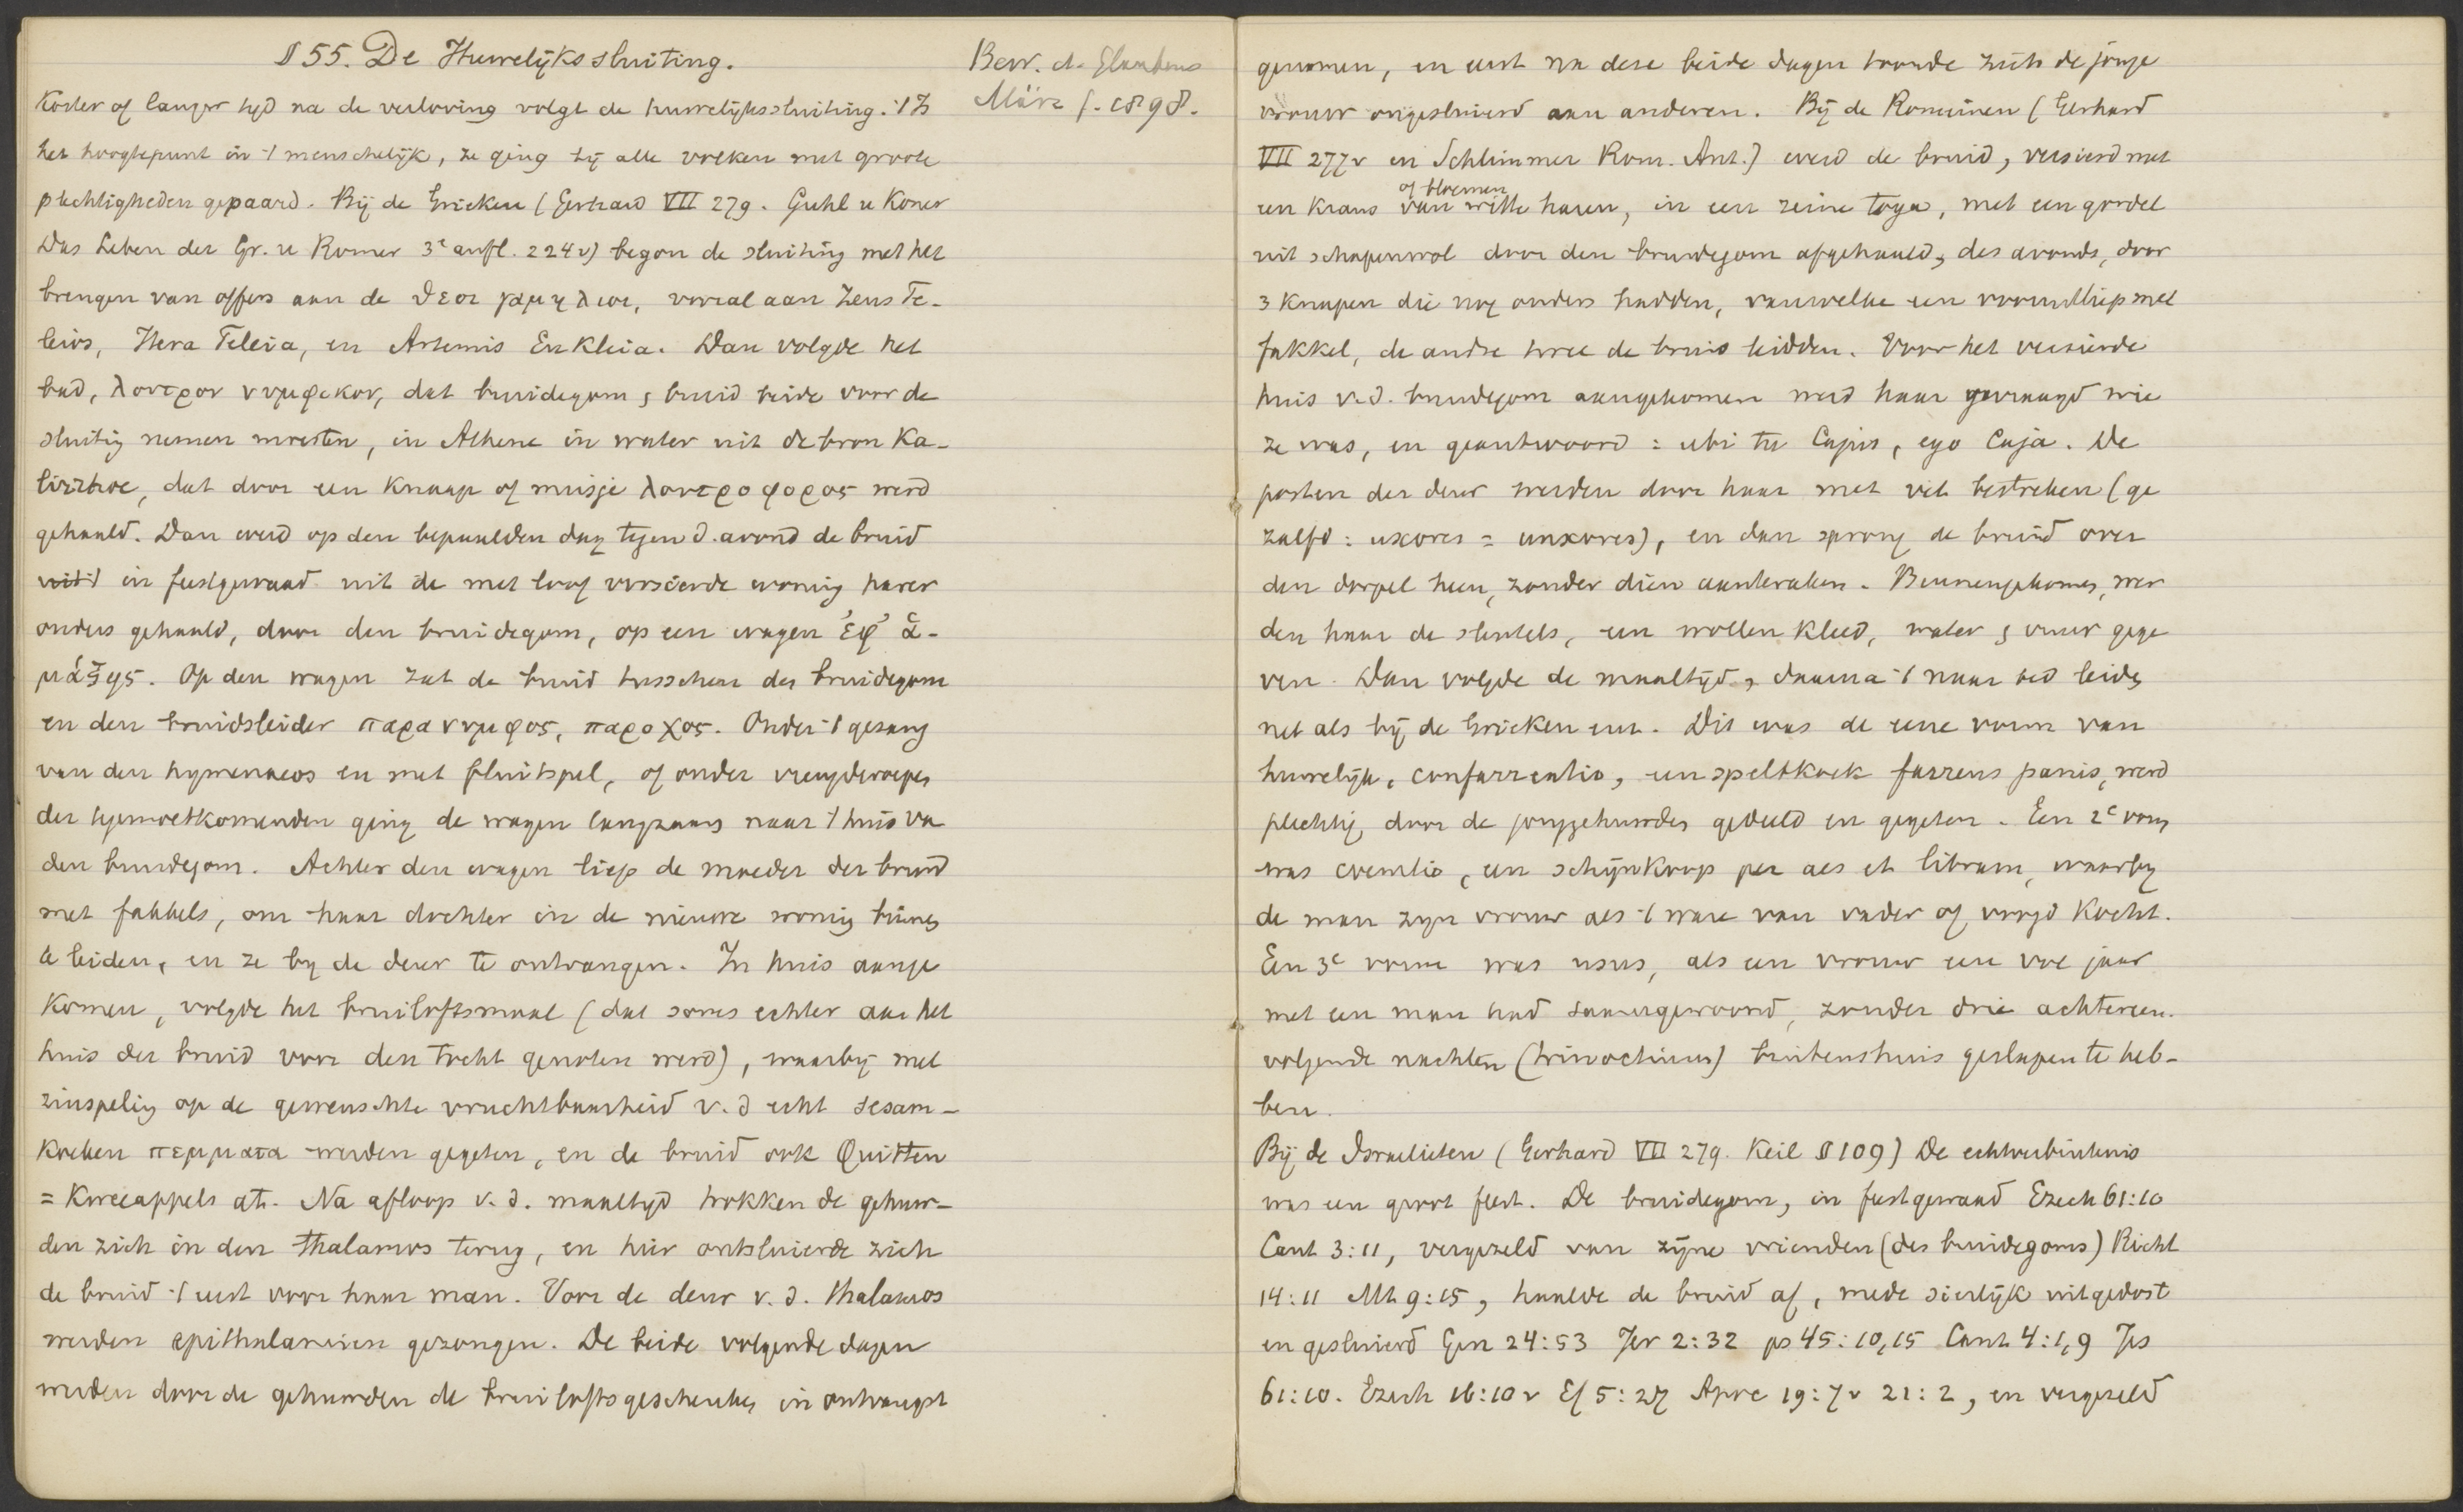 § 55. De Huwelijkssluiting.
Bew. d. Glaubens
März f. 1898.
Korter of langer tijd na de verloving volgt de huwelijkssluiting. 't Is
het hoogtepunt in 't menschelijk, ze ging bij alle volken met groote
plechtigheden gepaard. Bij de Grieken (Gerhard VII 279. Guhl u Koner
Das Leben der Gr. u Romer 3e aufl. 224v) begon de sluiting met het
brengen van offers aan de θεοι γαμηλιοι, vooral aan Zeus Te-
leios, Hera Teleia, en Artemis Eukleia. Dan volgde het
bad, λουτρον νυμφικον, dat bruidegom & bruid beide voor de
sluitig nemen moesten, in Athene in water uit de bron Ka-
lirrhoe, dat door een knaap of meisje λουτροφορος werd
gehaald. Dan werd op den bepaalden dag tegen d. avond de bruid
uit 't in feestgewaad uit de met loof versierde woning harer
ouders gehaald, door den bruidegom, op een wagen ἐφ' ἁ-
μάξης. Op den wagen zat de bruid tusschen den bruidegom
en den bruidsleider παρανυμφος, παροχος. Onder 't gezang
van den hymenaeos en met fluitspel, of onder vreugderoepen
der tegemoetkomenden ging de wagen langzaam naar 't huis va
den bruidegom. Achter den wagen liep de moeder der bruid
met fakkels, om haar dochter in de nieuwe woning binnen
te leiden, en ze bij de deur te ontvangen. In huis aange
komen, volgde het bruiloftsmaal (dat soms echter aan het
huis der bruid voor den tocht genoten werd), waarbij met
zinspelig op de gewenschte vruchtbaarheid v. d echt sesam-
koeken πεμματα werden gegeten, en de bruid ook Quitten
= Kweeappels at. Na afloop v. d. maaltijd trokken de gehuw-
den zich in den thalamos terug, en hier ontsluierde zich
de bruid 't eerst voor haar man. Voor de deur v. d. thalamos
werden epithalamien gezongen. De beide volgende dagen
werden door de gehuwden de bruiloftsgeschenken in ontvangst
genomen, en eerst na deze beide dagen toonde zich de jonge
vrouw ongesluierd aan anderen. Bij de Romeinen (Gerhard
VII 277v en Schlimmer Rom. Ant.) werd de bruid, versierd met
of bloemen
een krans van witte haren, in een reine toga, met een gordel
uit schapenwol door den bruidegom afgehaald, des avonds, door
3 knapen die nog ouders hadden, van welke een vooruitliep met
fakkel, de andre twee de bruid leidden. Voor het versierde
huis v. d. bruidegom aangekomen werd haar gevraagd wie
ze was, en geantwoord: ubi tu Cajus, ego Caja. De
posten der deur werden door haar met vet bestreken (ge
zalfd: uxores = unxores), en dan sprong de bruid over
den dorpel heen, zonder dien aanteraken. Binnengekomen, wer
den haar de sleutels, een wollen kleed, water & vuur gege
ven. Dan volgde de maaltijd, daarna 't naar bed leiden
net als bij de Grieken enz. Dit was de eene vorm van
huwelijk, confarreatio, een speltkoek farreus panis, werd
plechtig, door de jonggehuwden gedeeld en gegeten. Een 2e vorm
was coemtio, een schijnkoop per aes et libram, waarbij
de man zijn vrouw als 't ware van vader of voogd kocht.
Een 3e vorm was usus, als een vrouw een vol jaar
met een man had samengewoond, zonder drie achtereen-
volgende nachten (trinoctium) buitenshuis geslapen te heb-
ben.
Bij de Israelieten (Gerhard VII 279. Keil § 109) De echtverbintenis
was een groot feest. De bruidegom, in feestgewaad Ezech 61:10
Cant 3:11, vergezeld van zijne vrienden (des bruidegoms) Richt
14:11 Mt 9:15, haalde de bruid af, mede sierlijk uitgedost
en gesluierd Gen 24:53 Jer 2:32 ps 45:10,15 Cant 4:1,9 Jes
61:10. Ezech 16:10v Ef 5:27 Apoc 19:7v 21:2, en vergezeld